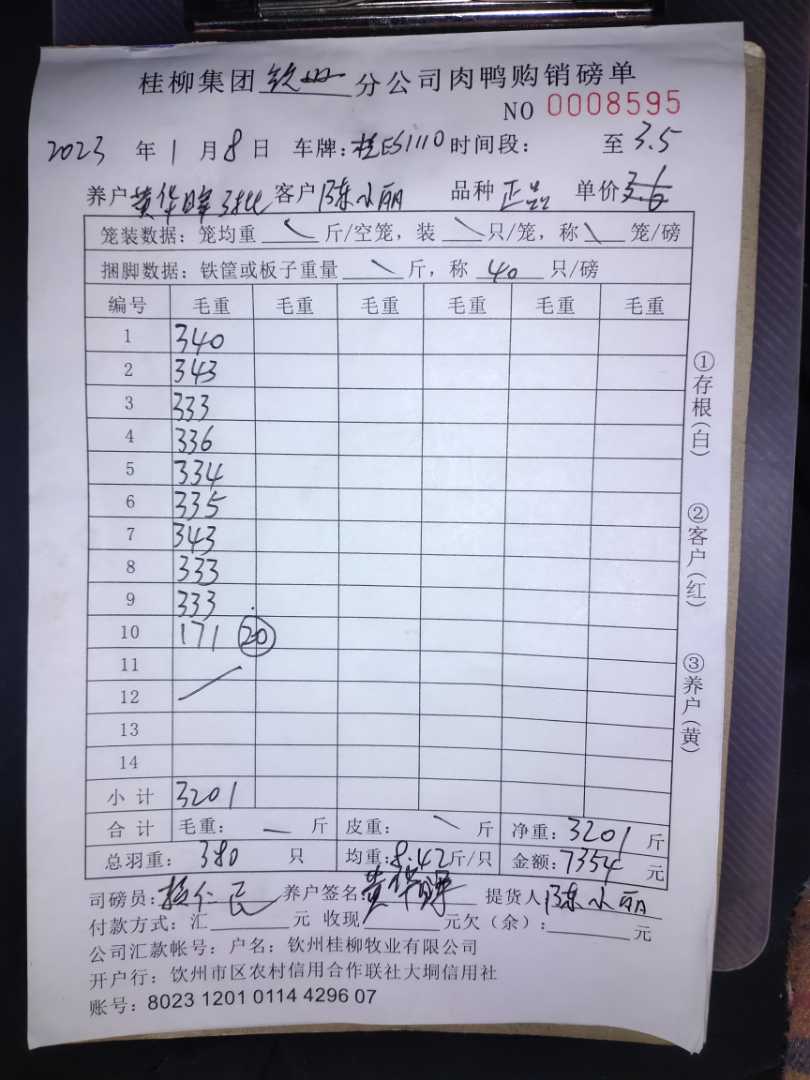 桂柳集团 钦州 分公司肉鸭购销磅单
NO 0008595
2023 年 1 月 8 日 车牌：桂ES1110 时间段： 至 3.5
养户 黄华晖 3批 客户 陈小丽 品种 正品 单价 3.6
笼装数据：笼均重 \ 斤/空笼，装 \ 只/笼，称 \ 笼/磅
捆脚数据：铁筐或板子重量 \ 斤，称 40 只/磅
编号 毛重 毛重 毛重 毛重 毛重 毛重
1 340
2 343
3 333
4 336
5 334
6 335
7 343
8 333
9 333
10 171 20
11
12 /
13
14
小计 3201
合计 毛重： — 斤 皮重： \ 斤 净重：3201 斤
总羽重： 380 只 均重：8.42斤/只 金额：7354 元
司磅员： 养户签名：黄华晖 提货人 陈小丽
付款方式：汇 元 收现 元欠（余）： 元
公司汇款帐号：户名：钦州桂柳牧业有限公司
开户行：钦州市区农村信用合作联社大垌信用社
账号：8023 1201 0114 4296 07
①存根（白）
②客户（红）
③养户（黄）